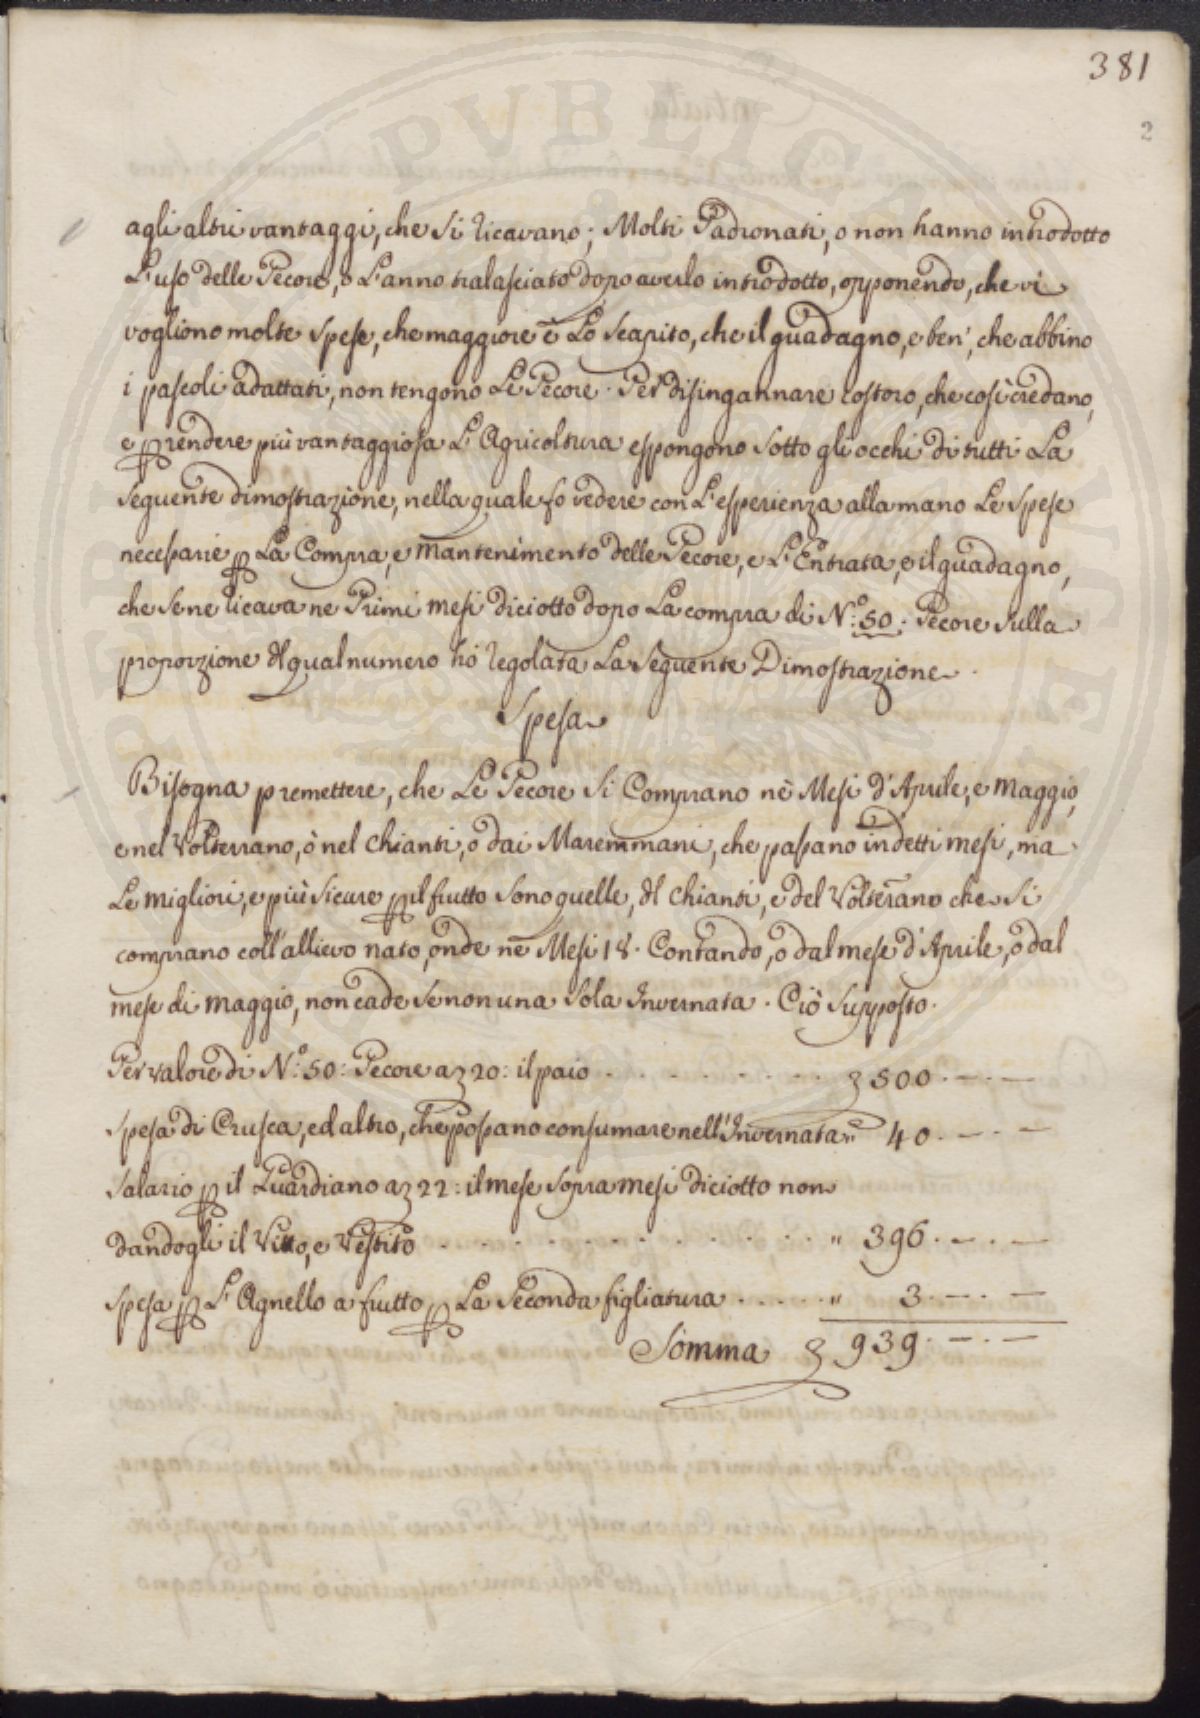 381
2
agli altri vantaggi, che si ricavano; Molti Padronati, o non hanno introdotto
L'uso delle Pecore, o L'anno tralasciato dopo averlo introdotto, opponendo, che vi
vogliono molte spese, che maggiore è Lo scapito, che il guadagno, e ben', che abbino
i pascoli adattati, non tengono Le Pecore. Per disingannare costoro, che così credano,
e p rendere più vantaggiosa L'Agricoltura espongono sotto gli occhi di tutti La
seguente dimostrazione, nella quale fo vedere con L'esperienza alla mano Le spese
necessarie p La Compra, e Mantenimento delle Pecore, e L'Entrata, e il guadagno,
che se ne ricava ne Primi mesi diciotto dopo La compra di N.º 50. Pecore sulla
proporzione dl qual numero hò regolata La seguente Dimostrazione.
Spesa
Bisogna premettere, che Le Pecore si Comprano nè Mesi d'Aprile, e Maggio,
e nel Volterrano, ò nel Chianti, o dai Maremmani, che passano in detti mesi, ma
Le migliori, e più sicure p il frutto sono quelle, dl Chianti, e del Volterano che si
comprano coll'allievo nato, onde nè Mesi 18. Contando, o dal mese d'Aprile, o dal
mese di maggio, non cade se non una sola Invernata. Ciò supposto.
Per valore di N.º 50: Pecore a ʒ 20: il paio . . . . . . . . ʒ 500. — . —
Spesa di Crusca, ed altro, che possano consumare nell'Invernata " 40. — . —
Salario p il Guardiano a ʒ 22: il mese sopra mesi diciotto non
dandogli il Vitto, e Vestito . . . . . . . . . . . . " 396. — . —
Spesa p L'Agnello a frutto p La seconda figliatura . . . . . " 3. — . —
Somma ʒ 939. — . —
PVBLICA